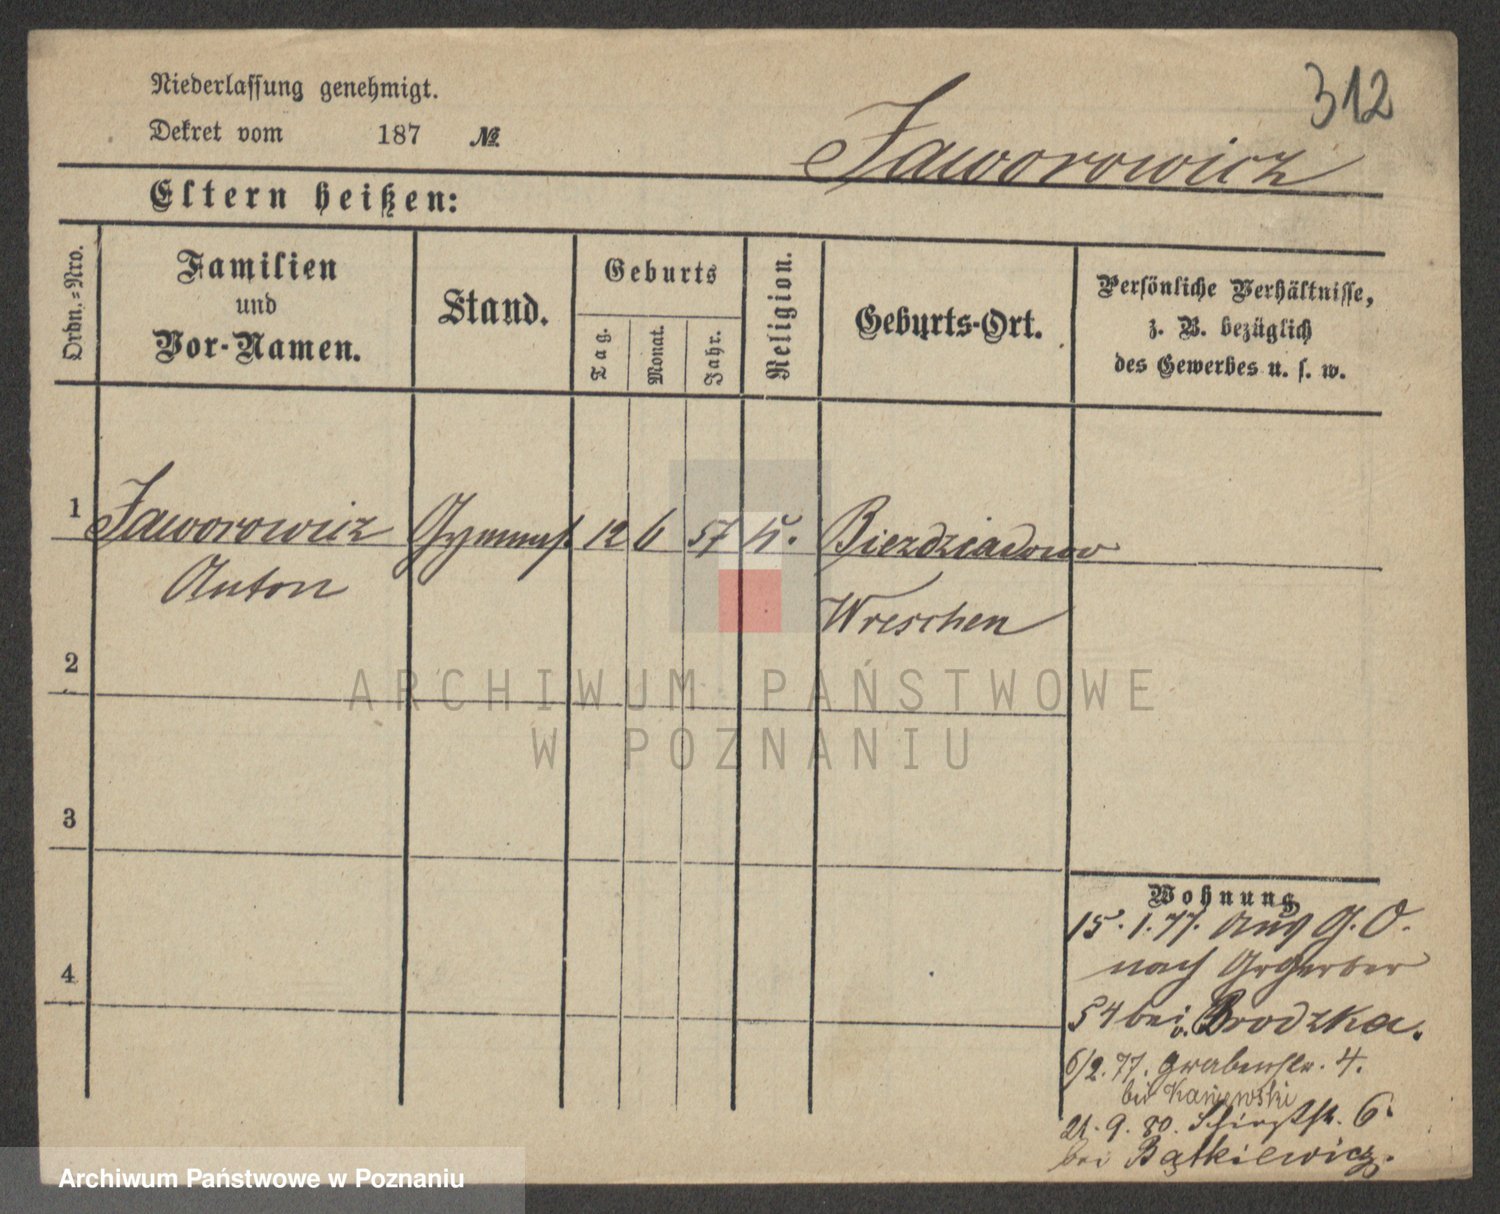 312
Niederlassung genehmigt.
Dekret vom 187 №
Jaworowicz
Eltern heißen:
Ordn.-Nro.
Familien
und
Vor-Namen.
Stand.
Geburts
Tag.
Monat.
Jahr.
Religion.
Geburts-Ort.
Persönliche Verhältnisse,
z. B. bezüglich
des Gewerbes u. s. w.
1 Jaworowicz 12 6 57 K. Bierdziadowo
Anton
Wreschen
2
ARCHIWUM PAŃSTWOWE
W POZNANIU
3
4
Wohnung
15.1.77. aus G. O.
nach GrGerber
54 bei v. Brodzka.
6/2.77. Grabenstr. 4.
bei Kaniewski
21.9.80. 6.
bei Bątkiewicz.
Archiwum Państwowe w Poznaniu